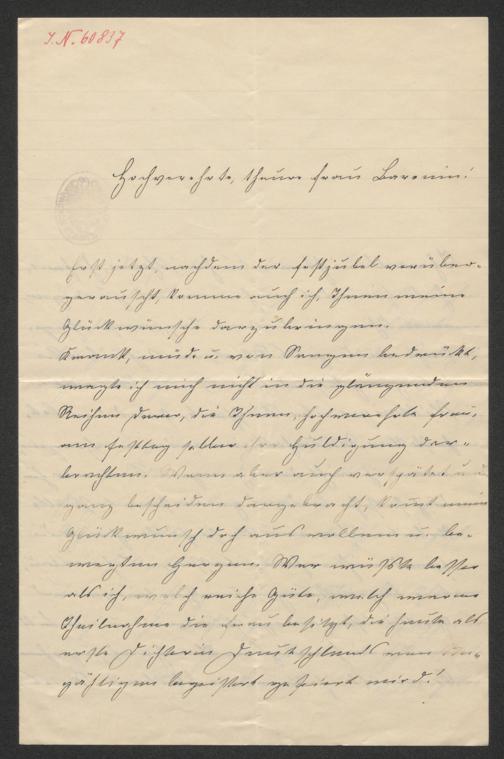 I. N. 60837
Hochverehrte, theure Frau Baronin!
Erst jetzt, nachdem der Festjubel vorüber-
gerauscht, komme auch ich, Ihnen meine
Glückwünsche darzubringen.
Krank, müde u. von Sorgen bedrückt,
wagte ich mich nicht in die glänzenden
Reihen derer, die Ihnen, hochverehrte Frau,
am Festtag selber ihre Huldigung dar-
brachten. Wenn aber auch verspätet und
ganz bescheiden dargebracht, kommt mein
Glückwunsch doch aus vollem u. be-
wegtem Herzen. Wer wüßte besser
als ich, welch reiche Güte, welch warme
Theilnahme die Frau besitzt, die heute als
erste Dichterin Deutschlands von Un-
zähligen begeistert gefeiert wird!